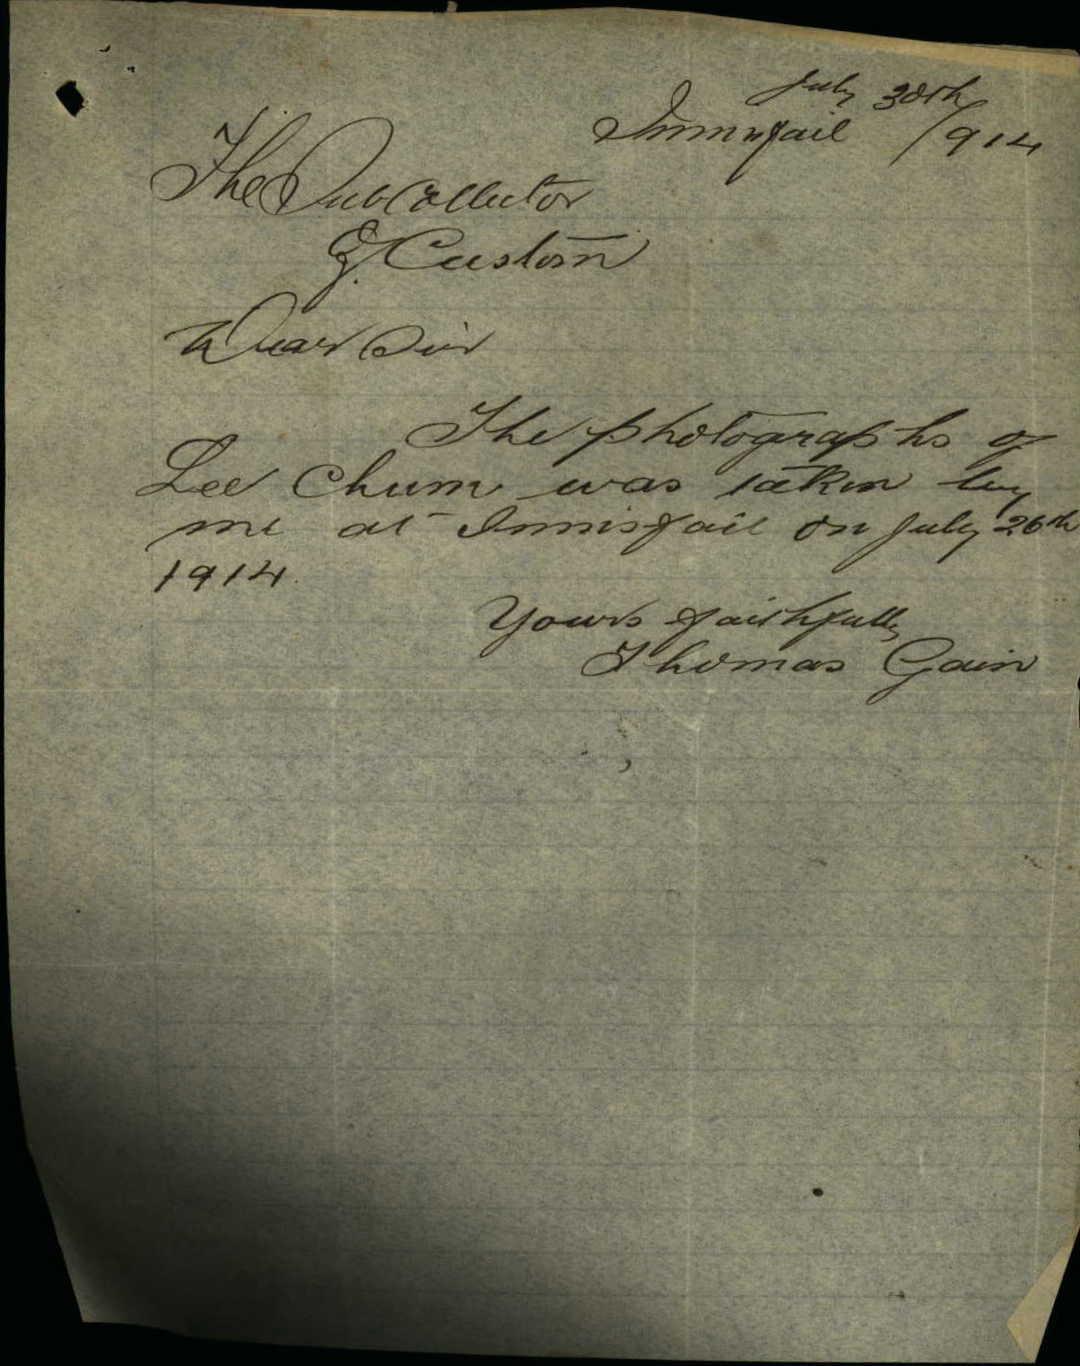 July 30th
Innisfail 1914
The Sub Collector
Of Custom
Dear Sir
The photographs of
Lee Chum was taken by
me at Innisfail on July 26th
1914.
Yours faithfully
Thomas Gain